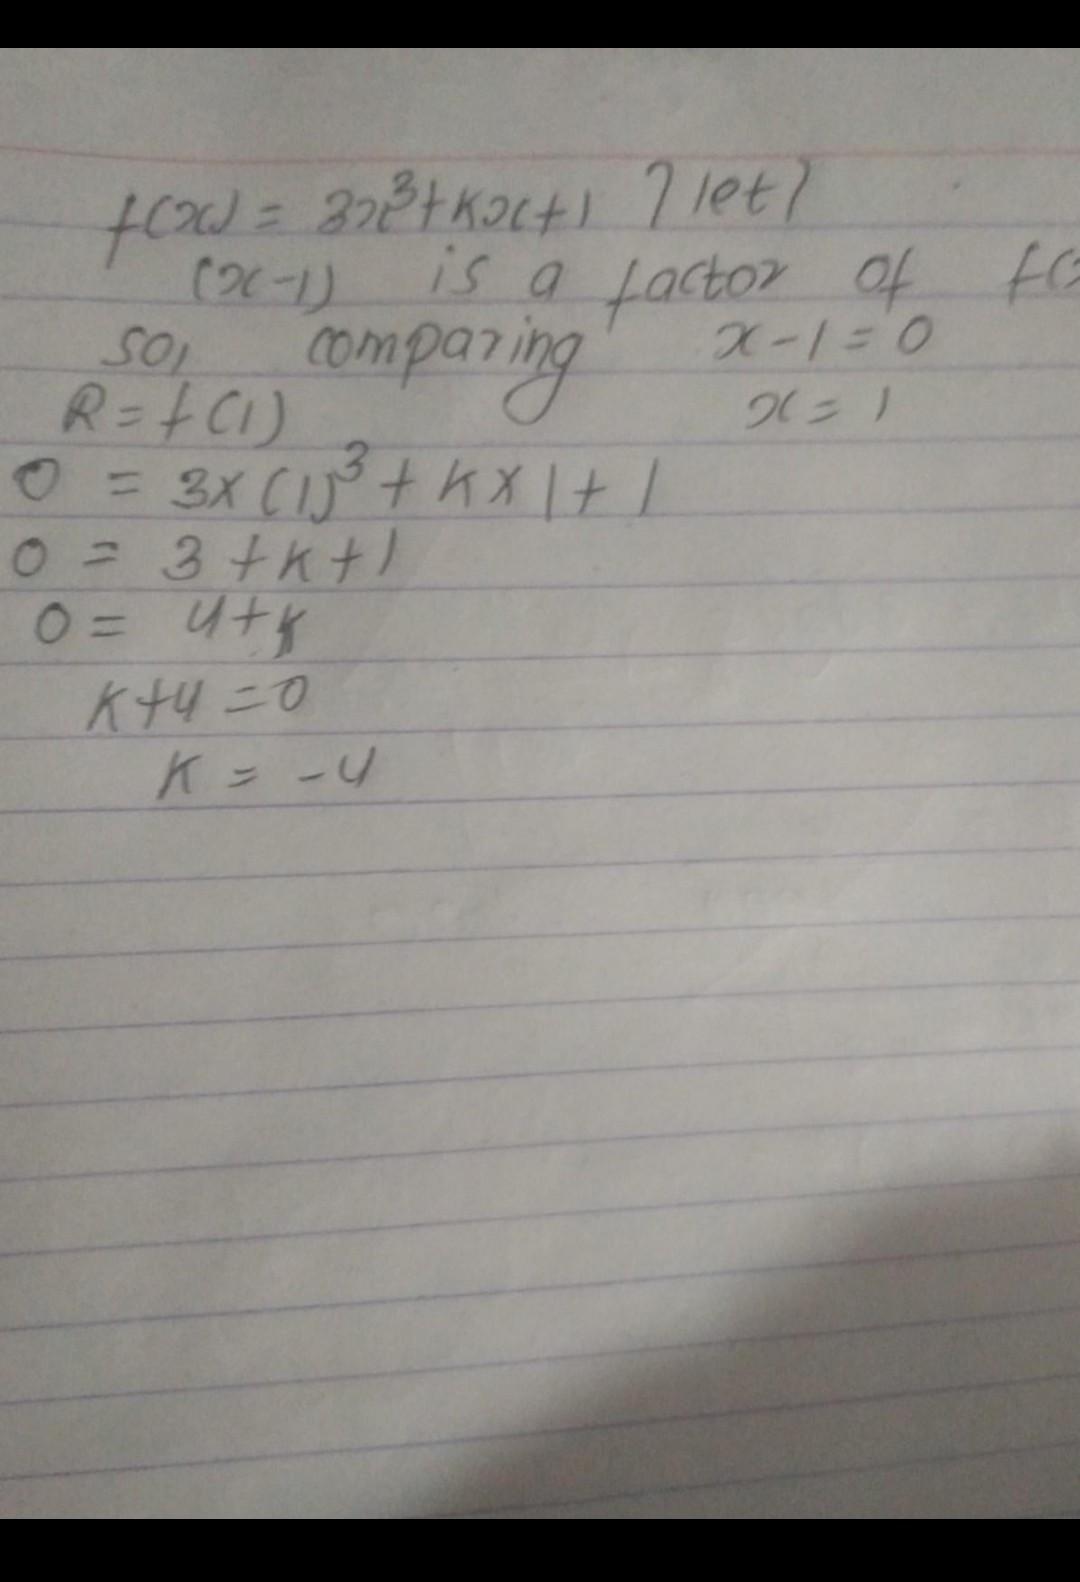 f(x) = 3x³+kx+1 ? let?
(x-1) is a factor of f(x
so, comparing x-1=0
R=f(1) x=1
0 = 3×(1)³+k×1+1
0 = 3+k+1
0 = 4+k
k+4=0
k = -4